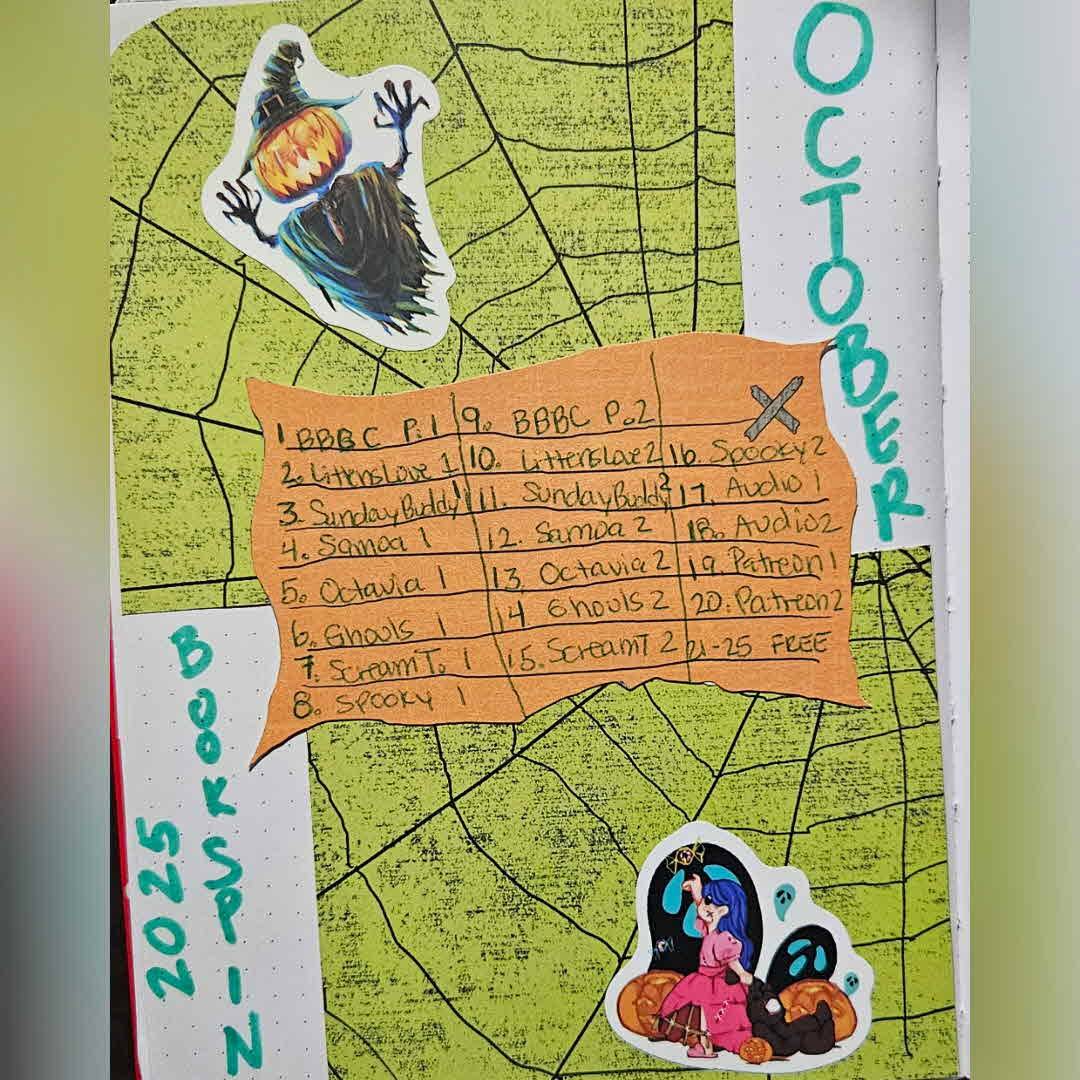 OCTOBER
1 BBBC P.1
2. LittensLove 1
3. SundayBuddy 1
4. Samoa 1
5. Octavia 1
6. Ghouls 1
7. ScreamT. 1
8. Spooky 1
9. BBBC P.2
10. LittensLove 2
11. SundayBuddy 2
12. Samoa 2
13. Octavia 2
14 Ghouls 2
15. ScreamT 2
16. Spooky 2
17. Audio 1
18. Audio 2
19. Patreon 1
20. Patreon 2
21-25 FREE
BOOKSPIN
2025